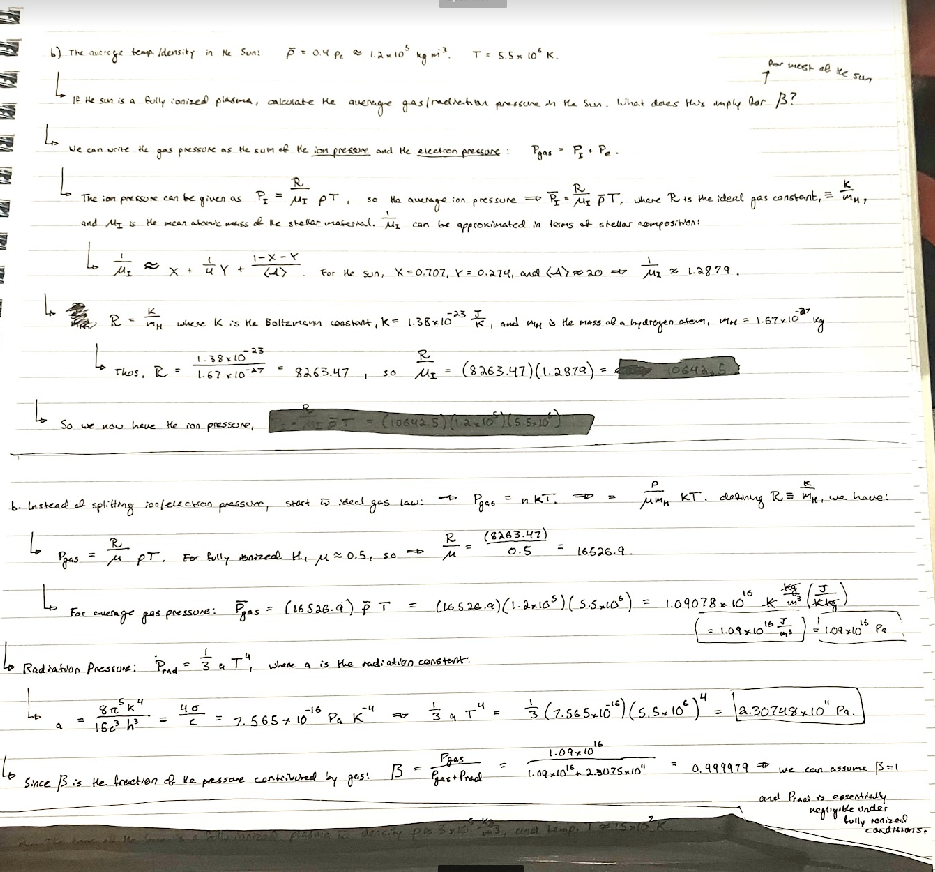 b) The average temp/density in the Sun: ρ̄ = 0.4 ρc ≈ 1.2×10⁵ kg m⁻³. T = 5.5×10⁶ K.
for most of the sun
↳ If the sun is a fully ionized plasma, calculate the average gas/radiation pressure in the Sun. What does this imply for β?
↳ We can write the gas pressure as the sum of the ion pressure and the electron pressure: Pgas = P_I + Pe.
↳ The ion pressure can be given as P_I = R/μ_I ρT, so the average ion pressure ⇒ P̄_I = R/μ_I ρ̄T, where R is the ideal gas constant, ≡ K/m_H,
and μ_I is the mean atomic mass of the stellar material. 1/μ_I can be approximated in terms of stellar composition:
↳ 1/μ_I ≈ X + 1/4 Y + (1-X-Y)/⟨A⟩. For the sun, X=0.707, Y=0.274, and ⟨A⟩≈20 ⇒ 1/μ_I ≈ 1.2879.
↳ R = K/m_H where K is the Boltzmann constant, K= 1.38×10⁻²³ J/K, and m_H is the mass of a hydrogen atom, m_H = 1.67×10⁻²⁷ kg
↳ Thus, R = 1.38×10⁻²³/1.67×10⁻²⁷ = 8263.47, so R/μ_I = (8263.47)(1.2879) = 10642.5
↳ So we now have the ion pressure, = R/μ_I ρ̄T = (10642.5)(1.2×10⁵)(5.5×10⁶)
b. Instead of splitting ion/electron pressure, start w ideal gas law: → Pgas = nKT. ⇒ = ρ/μm_H KT. defining R ≡ K/m_H, we have:
↳ Pgas = R/μ ρT. For fully ionized H, μ ≈ 0.5, so → R/μ = (8263.47)/0.5 = 16526.9.
↳ For average gas pressure: P̄gas = (16526.9) ρ̄ T = (16526.9)(1.2×10⁵)(5.5×10⁶) = 1.09078×10¹⁶ K kg/m³ (J/K kg)
(= 1.09×10¹⁶ J/m³) = 1.09×10¹⁶ Pa.
↳ Radiation Pressure: Prad = 1/3 a T⁴, where a is the radiation constant
↳ a = 8π⁵k⁴/15c³h³ = 4σ/c = 7.565×10⁻¹⁶ Pa K⁻⁴ ⇒ 1/3 a T⁴ = 1/3 (7.565×10⁻¹⁶)(5.5×10⁶)⁴ = 2.30748×10¹¹ Pa.
↳ Since β is the fraction of the pressure contributed by gas: β = Pgas/(Pgas+Prad) = 1.09×10¹⁶/(1.09×10¹⁶+2.3075×10¹¹) = 0.999979 ⇒ we can assume β=1
and Prad is essentially
negligible under
fully ionized
conditions.